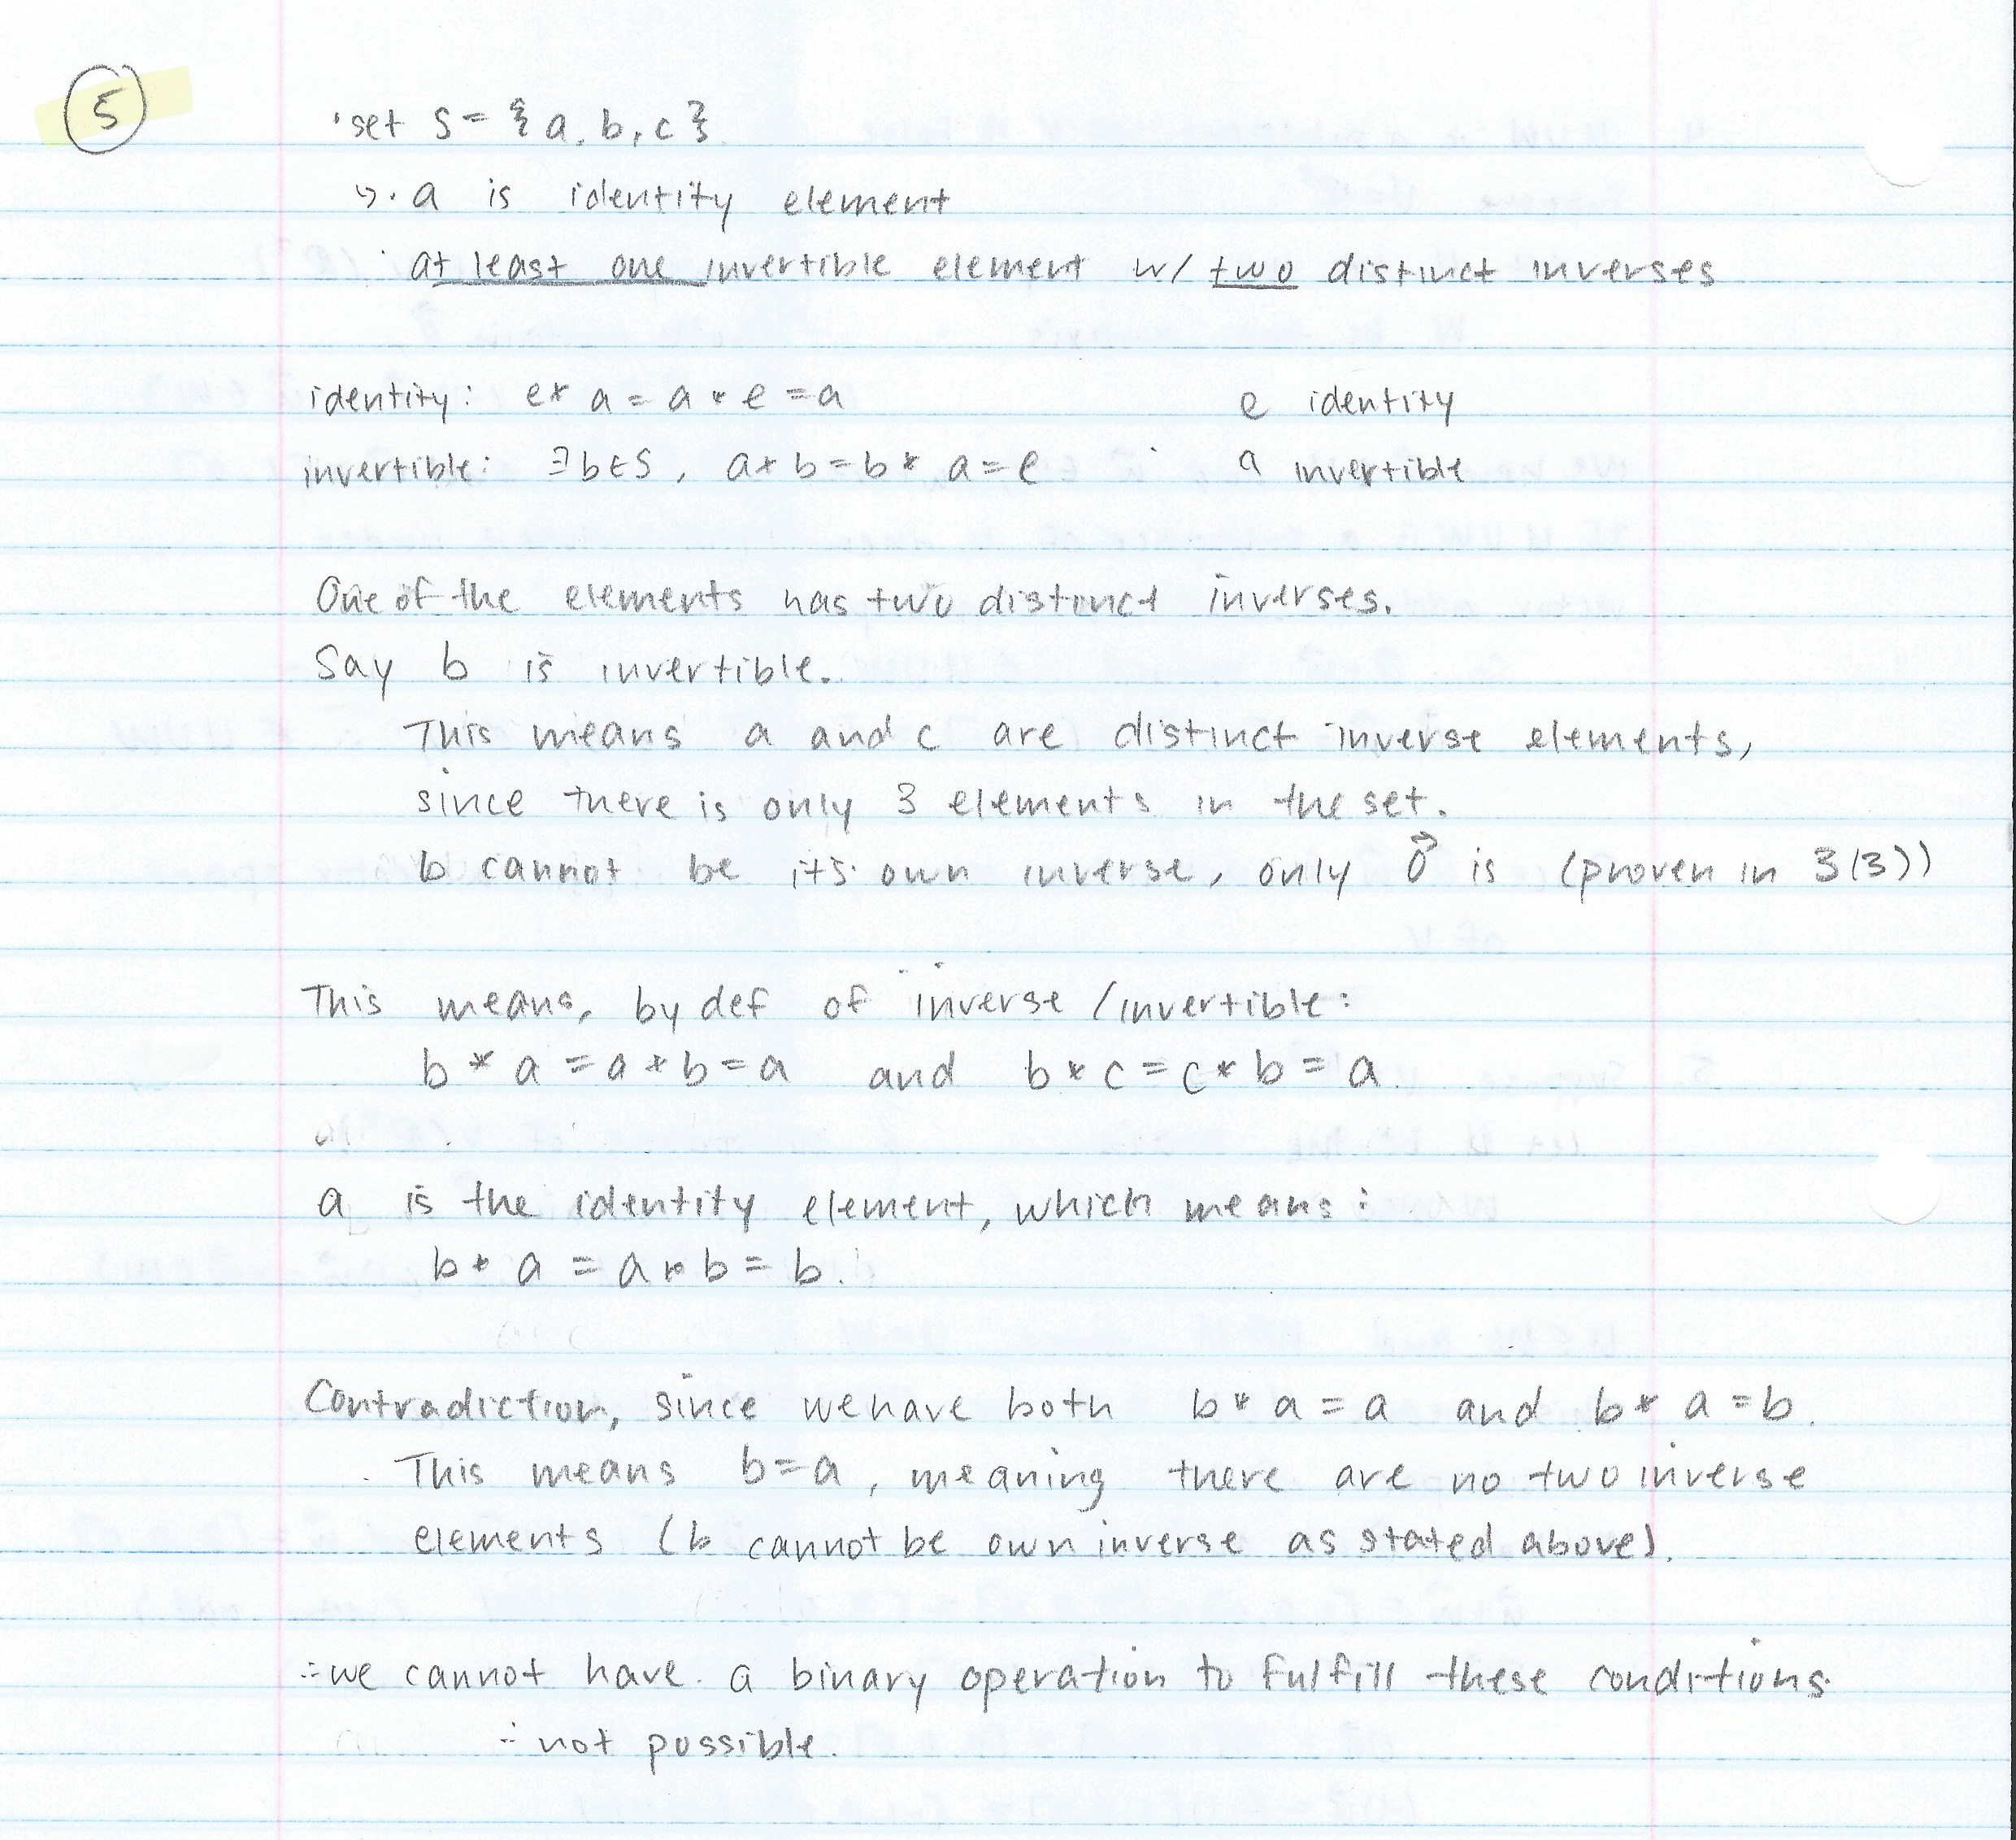 5
· set S = { a, b, c }
↳ · a is identity element
· at least one invertible element w/ two distinct inverses
identity: e * a = a * e = a e identity
invertible: ∃ b ∈ S, a * b = b * a = e a invertible
One of the elements has two distinct inverses.
Say b is invertible.
This means a and c are distinct inverse elements,
since there is only 3 elements in the set.
b cannot be its own inverse, only 0⃗ is (proven in 3(3))
This means, by def of inverse / invertible:
b * a = a * b = a and b * c = c * b = a.
a is the identity element, which means:
b * a = a * b = b.
Contradiction, since we have both b * a = a and b * a = b.
This means b = a, meaning there are no two inverse
elements (b cannot be own inverse as stated above).
∴ we cannot have a binary operation to fulfill these conditions.
∴ not possible.